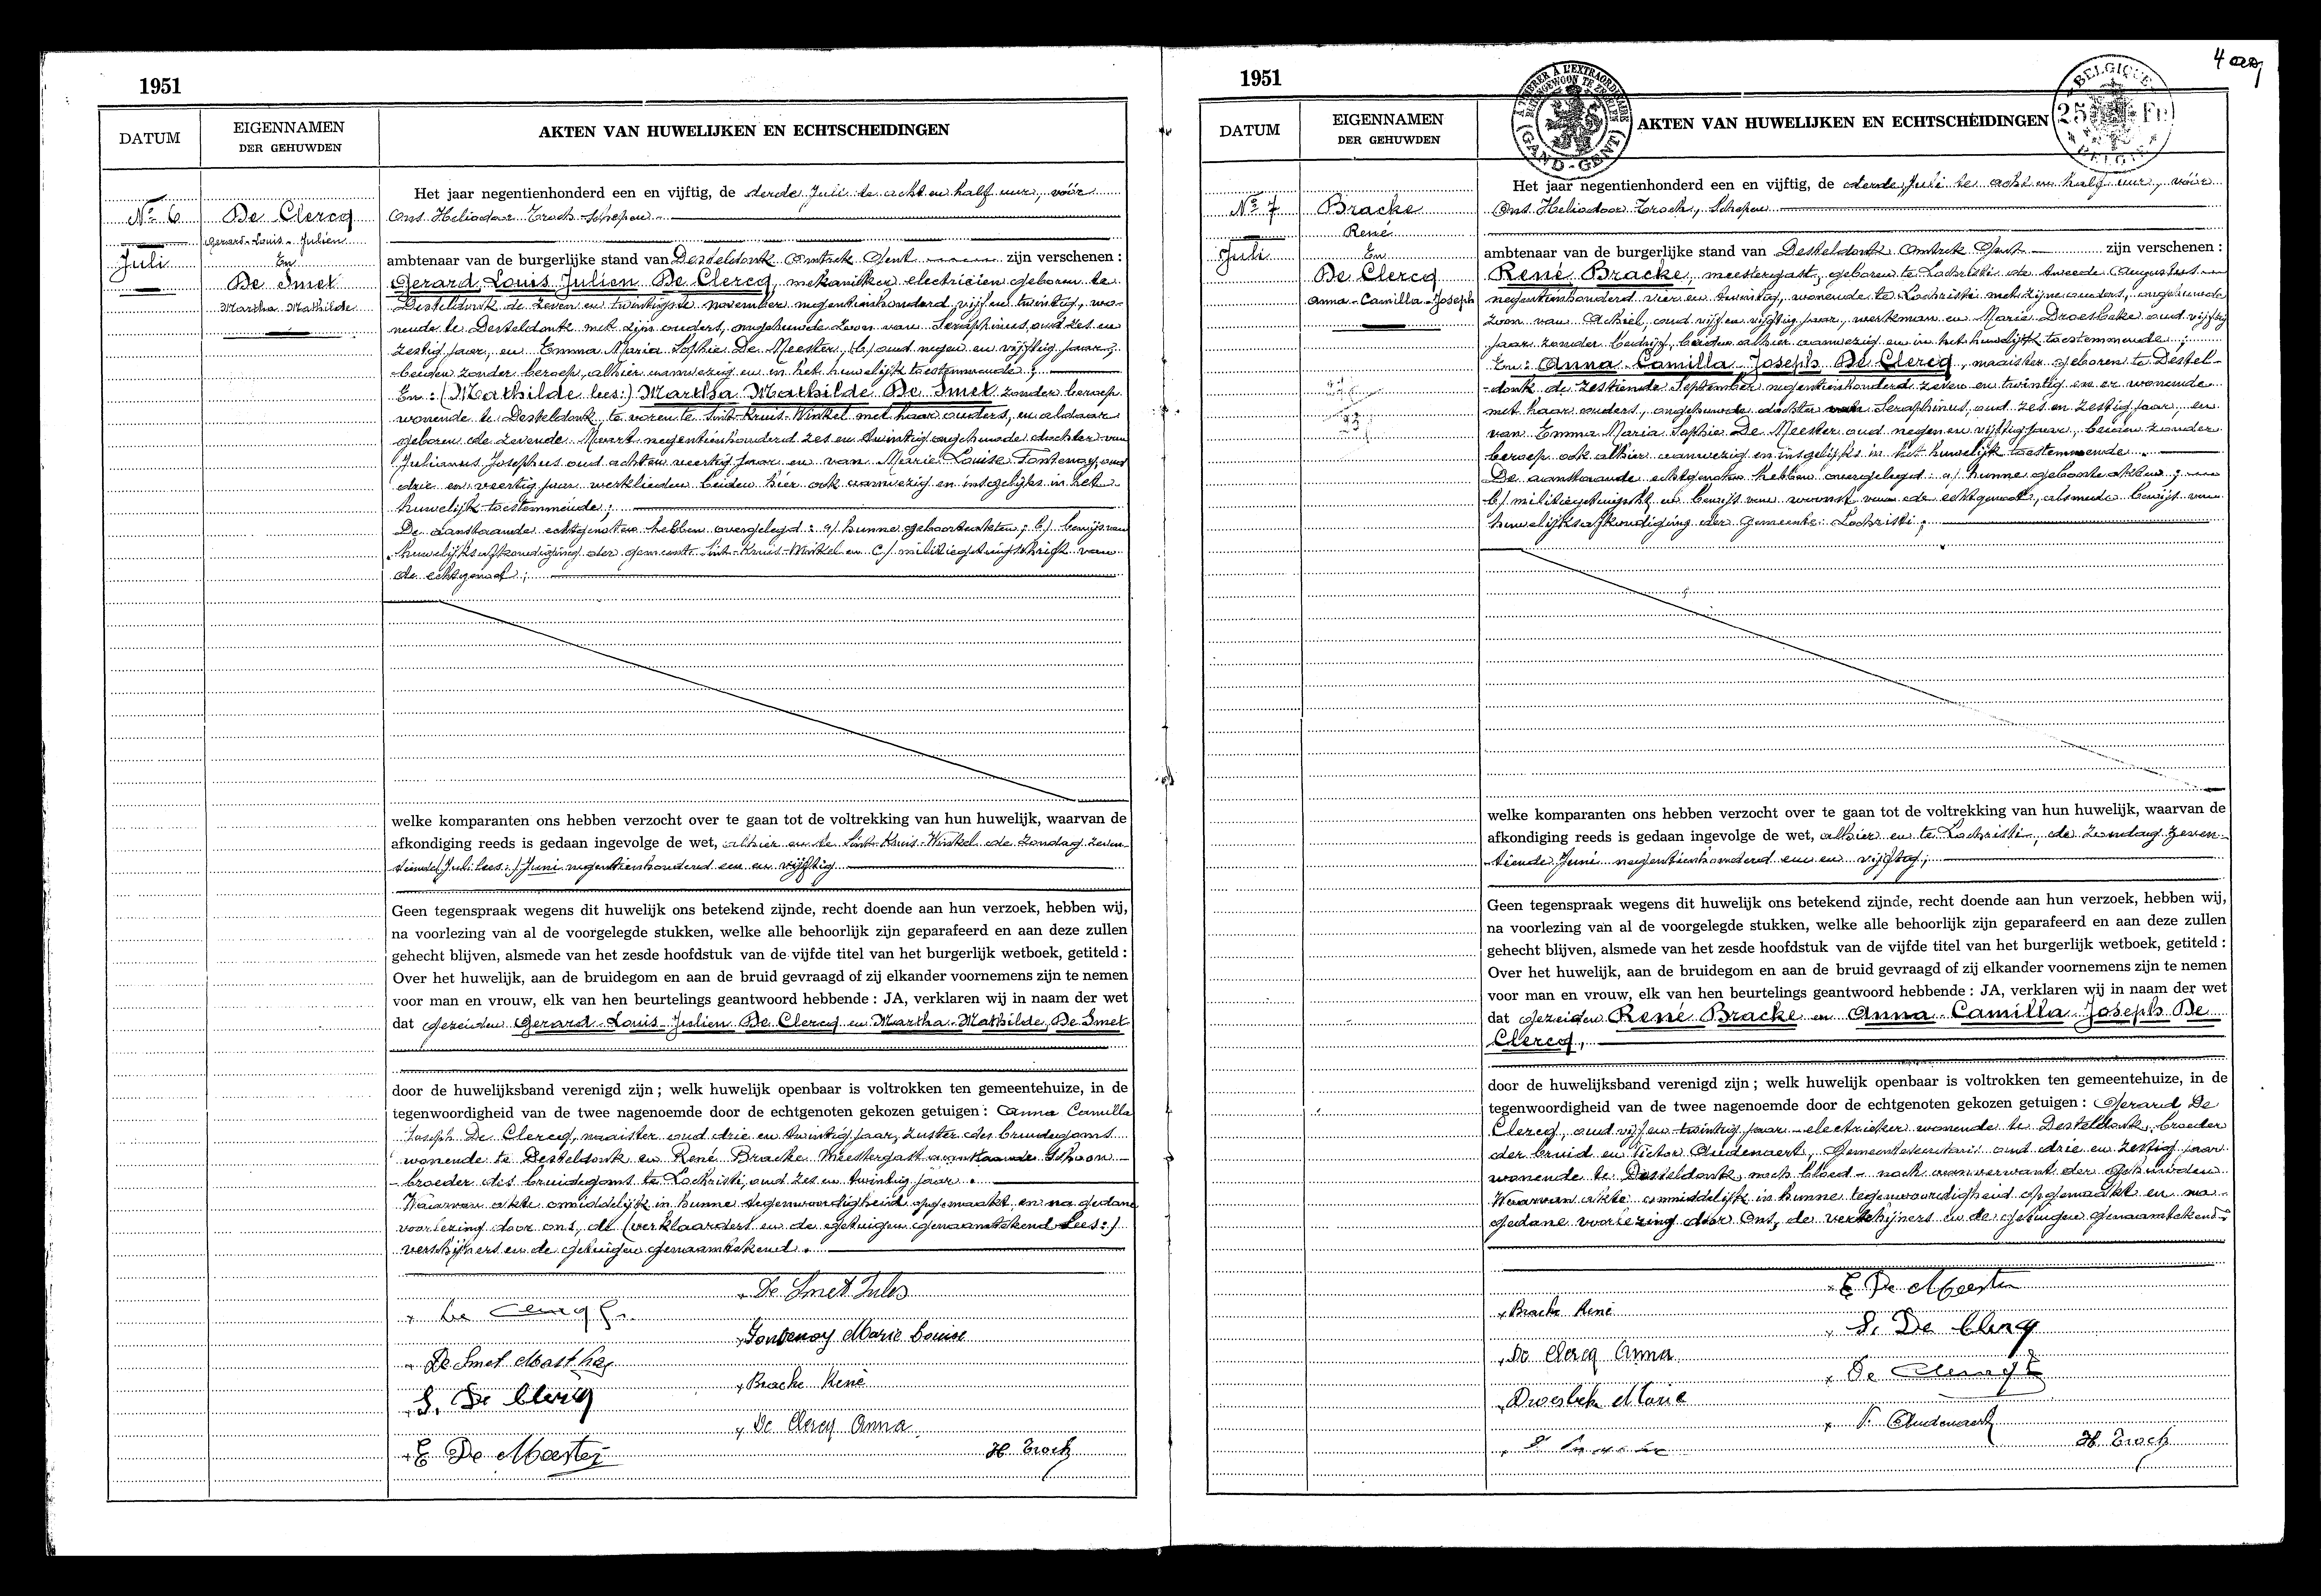 1951
DATUM
EIGENNAMEN
DER GEHUWDEN
AKTEN VAN HUWELIJKEN EN ECHTSCHEIDINGEN
Nº 6
Juli
De Clercq
Gerard-Louis-Julien
En
De Smet
Martha Mathilde
Het jaar negentienhonderd een en vijftig, de derde Juli te acht en half uur, vóór
Ons Heliodoor Troch Schepen
ambtenaar van de burgerlijke stand van Desteldonk Omtrek Gent zijn verschenen :
Gerard Louis Julien De Clercq, mekanieker electricien geboren te
Desteldonk de zeven en twintigste november negentienhonderd vijf en twintig, wo-
nende te Desteldonk met zijn ouders, ongehuwde zoon van Seraphinus, oud zes en
zestig jaar, en Emma Maria Sophie De Meester, oud negen en vijftig jaar,
beiden zonder beroep, alhier aanwezig en in het huwelijk toestemmende ;
En : (Mathilde lees:) Martha Mathilde De Smet zonder beroep
wonende te Desteldonk, te voren te Sint-Kruis-Winkel met haar ouders, en aldaar
geboren de zevende Maart negentienhonderd zes en twintig ongehuwde dochter van
Julianus Josephus oud acht en veertig jaar en van Marie Louise Fontenoy, oud
drie en veertig jaar werklieden beiden hier ook aanwezig en insgelijks in het
huwelijk toestemmende ;
De aanstaande echtgenoten hebben overgelegd : a/ hunne geboorteakten ; b/ bewijs van
huwelijksafkondiging der gemeente Sint-Kruis-Winkel en c/ militiegetuigschrift van
de echtgenoot ;
welke komparanten ons hebben verzocht over te gaan tot de voltrekking van hun huwelijk, waarvan de
afkondiging reeds is gedaan ingevolge de wet, alhier en te Sint-Kruis-Winkel de zondag zeven-
tiende (Juli lees:) Juni negentienhonderd een en vijftig
Geen tegenspraak wegens dit huwelijk ons betekend zijnde, recht doende aan hun verzoek, hebben wij,
na voorlezing van al de voorgelegde stukken, welke alle behoorlijk zijn geparafeerd en aan deze zullen
gehecht blijven, alsmede van het zesde hoofdstuk van de vijfde titel van het burgerlijk wetboek, getiteld :
Over het huwelijk, aan de bruidegom en aan de bruid gevraagd of zij elkander voornemens zijn te nemen
voor man en vrouw, elk van hen beurtelings geantwoord hebbende : JA, verklaren wij in naam der wet
dat gezeiden Gerard-Louis-Julien De Clercq en Martha-Mathilde De Smet
door de huwelijksband verenigd zijn ; welk huwelijk openbaar is voltrokken ten gemeentehuize, in de
tegenwoordigheid van de twee nagenoemde door de echtgenoten gekozen getuigen : Anna Camilla
Joseph De Clercq, naaister oud drie en twintig jaar, zuster des bruidegoms
wonende te Desteldonk en René Bracke Meestergast aanstaande schoon-
broeder des bruidegoms te Lochristi, oud zes en twintig jaar .
Waarvan akte onmiddelijk in hunne tegenwoordigheid opgemaakt en na gedane
voorlezing door ons, de (verklaarders en de getuigen genaamtekend Lees:)
verschijners en de getuigen genaamtekend .
De Smet Jules
De Clercq G.
Fontenoy Marie Louise
De Smet Martha
Bracke René
S. De Clercq
De Clercq Anna
E De Meester
H Troch
4
1951
A TIMBRER A L'EXTRAORDINAIRE
(GAND-GENT)
BELGIQUE
25 Fr
BELGIË
DATUM
EIGENNAMEN
DER GEHUWDEN
AKTEN VAN HUWELIJKEN EN ECHTSCHEIDINGEN
Nº 7
Juli
Bracke
René
En
De Clercq
Anna-Camilla-Joseph
Het jaar negentienhonderd een en vijftig, de derde Juli te acht en half uur, vóór
Ons Heliodoor Troch, Schepen
ambtenaar van de burgerlijke stand van Desteldonk Omtrek Gent zijn verschenen :
René Bracke, meestergast, geboren te Lochristi de tweede Augustus
negentienhonderd vier en twintig, wonende te Lochristi met zijne ouders, ongehuwde
zoon van Achiel, oud vijf en vijftig jaar, werkman en Marie Droesbeke oud vijftig
jaar zonder bedrijf, beiden alhier aanwezig en in het huwelijk toestemmende ;
En : Anna Camilla Joseph De Clercq, naaister geboren te Destel-
donk de zestiende September negentienhonderd zeven en twintig en er wonende
met haar ouders, ongehuwde dochter van Seraphinus, oud zes en zestig jaar, en
van Emma Maria Sophie De Meester oud negen en vijftig jaar, beiden zonder
beroep ook alhier aanwezig en insgelijks in het huwelijk toestemmende .
De aanstaande echtgenoten hebben overgelegd : a/ hunne geboorteakten ;
b/ militiegetuigschrift en bewijs van woonst van de echtgenoot, alsmede bewijs van
huwelijksafkondiging der gemeente Lochristi ;
welke komparanten ons hebben verzocht over te gaan tot de voltrekking van hun huwelijk, waarvan de
afkondiging reeds is gedaan ingevolge de wet, alhier en te Lochristi, de zondag zeven-
tiende Juni negentienhonderd een en vijftig ;
Geen tegenspraak wegens dit huwelijk ons betekend zijnde, recht doende aan hun verzoek, hebben wij,
na voorlezing van al de voorgelegde stukken, welke alle behoorlijk zijn geparafeerd en aan deze zullen
gehecht blijven, alsmede van het zesde hoofdstuk van de vijfde titel van het burgerlijk wetboek, getiteld :
Over het huwelijk, aan de bruidegom en aan de bruid gevraagd of zij elkander voornemens zijn te nemen
voor man en vrouw, elk van hen beurtelings geantwoord hebbende : JA, verklaren wij in naam der wet
dat gezeiden René Bracke en Anna-Camilla-Joseph De
Clercq,
door de huwelijksband verenigd zijn ; welk huwelijk openbaar is voltrokken ten gemeentehuize, in de
tegenwoordigheid van de twee nagenoemde door de echtgenoten gekozen getuigen : Gerard De
Clercq, oud vijf en twintig jaar electrieker wonende te Desteldonk, broeder
der bruid en Victor Audenaert, Gemeentesecretaris oud drie en zestig jaar
wonende te Desteldonk, noch bloed- noch aanverwant der gehuwden
Waarvan akte onmiddelijk in hunne tegenwoordigheid opgemaakt en na
gedane voorlezing door Ons, de verschijners en de getuigen genaamtekend
E De Meester
Bracke René
S. De Clercq
De Clercq Anna
De Clercq G
Droesbeke Marie
V. Audenaert
H Troch